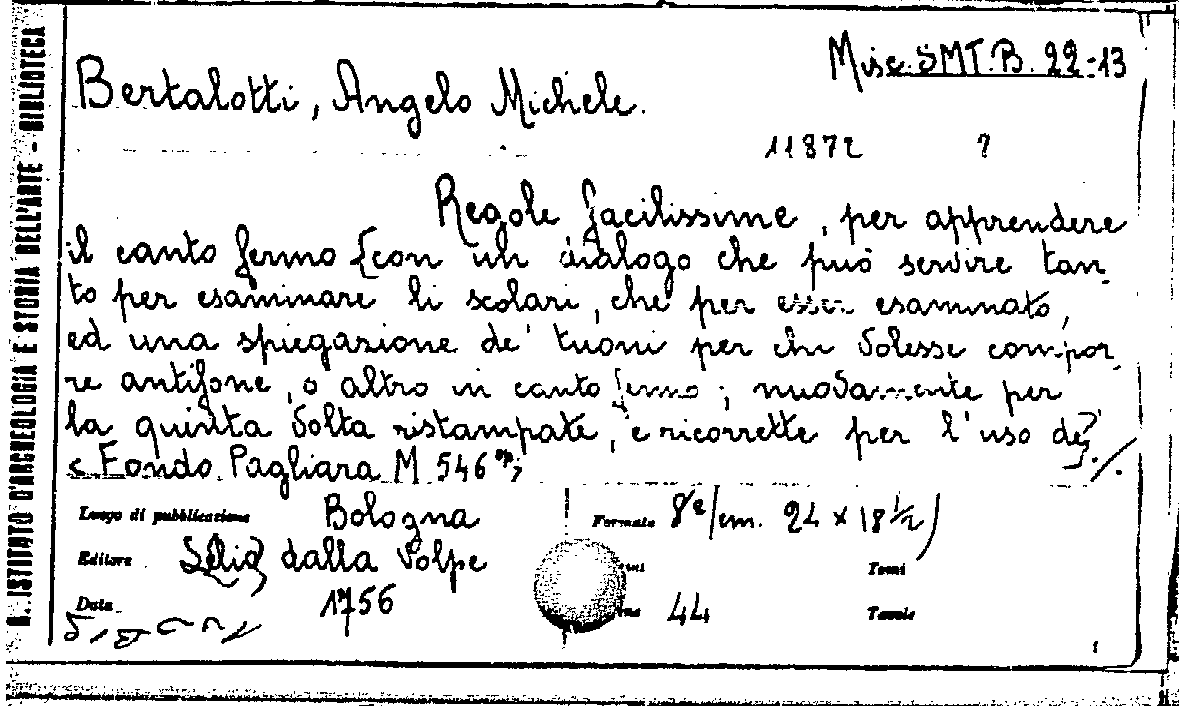 Misc. SMT. B. 22-13
Bertalotti, Angelo Michele.
11872 ?
Regole facilissime, per apprendere
il canto fermo [con un dialogo che può servire tan-
to per esaminare li scolari, che per esser esaminato,
ed una spiegazione de' tuoni per chi volesse compor-
re antifone, o altro in canto fermo; nuovamente per
la quinta volta ristampate, e ricorrette per l'uso de
< Fondo Pagliara M 546 op;
Luogo di pubblicazione Bologna Formato 8°/cm. 24 x 18 1/2)
Editore Lelio dalla Volpe Tomi
Data 1756 44 Tavole
1
R. ISTITUTO D'ARCHEOLOGIA E STORIA DELL'ARTE - BIBLIOTECA